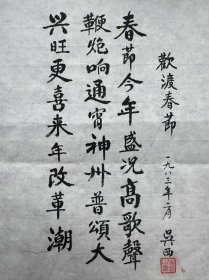 歡渡春節
一九八三年二月 吳西
春節今年盛况髙歌聲
鞭炮响通宵神州普頌大
兴旺更喜来年改革潮